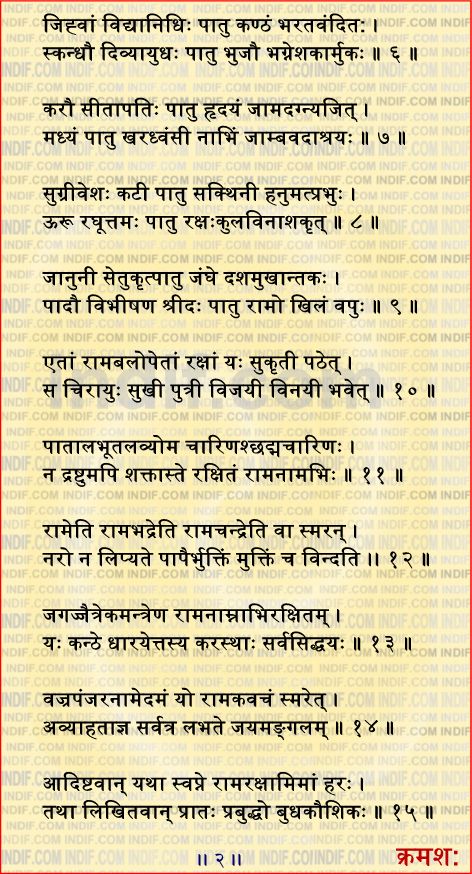 जिह्वां विद्यानिधिः पातु कण्ठं भरतवंदित: ।
स्कन्धौ दिव्यायुधः पातु भुजौ भग्नेशकार्मुकः ॥ ६ ॥
करौ सीतापतिः पातु हृदयं जामदग्न्यजित् ।
मध्यं पातु खरध्वंसी नाभिं जाम्बवदाश्रयः ॥ ७ ॥
सुग्रीवेशः कटी पातु सक्थिनी हनुमत्प्रभुः ।
ऊरू रघूत्तमः पातु रक्षःकुलविनाशकृत् ॥ ८ ॥
जानुनी सेतुकृत्पातु जंघे दशमुखान्तकः ।
पादौ विभीषण श्रीदः पातु रामो खिलं वपुः ॥ ९ ॥
एतां रामबलोपेतां रक्षां यः सुकृती पठेत् ।
स चिरायुः सुखी पुत्री विजयी विनयी भवेत् ॥ १० ॥
पातालभूतलव्योम चारिणश्छद्मचारिणः ।
न द्रष्टुमपि शक्तास्ते रक्षितं रामनामभिः ॥ ११ ॥
रामेति रामभद्रेति रामचन्द्रेति वा स्मरन् ।
नरो न लिप्यते पापैर्भुक्तिं मुक्तिं च विन्दति ।। १२ ॥
जगज्जैत्रेकमन्त्रेण रामनाम्नाभिरक्षितम् ।
यः कन्ठे धारयेत्तस्य करस्थाः सर्वसिद्धयः ॥ १३ ॥
वज्रपंजरनामेदमं यो रामकवचं स्मरेत् ।
अव्याहताज्ञ सर्वत्र लभते जयमङ्गलम् ॥ १४ ॥
आदिष्टवान् यथा स्वप्ने रामरक्षामिमां हरः ।
तथा लिखितवान् प्रातः प्रबुद्धो बुधकौशिकः ॥ १५ ॥
॥ २ ॥ क्रमश:
indif.com